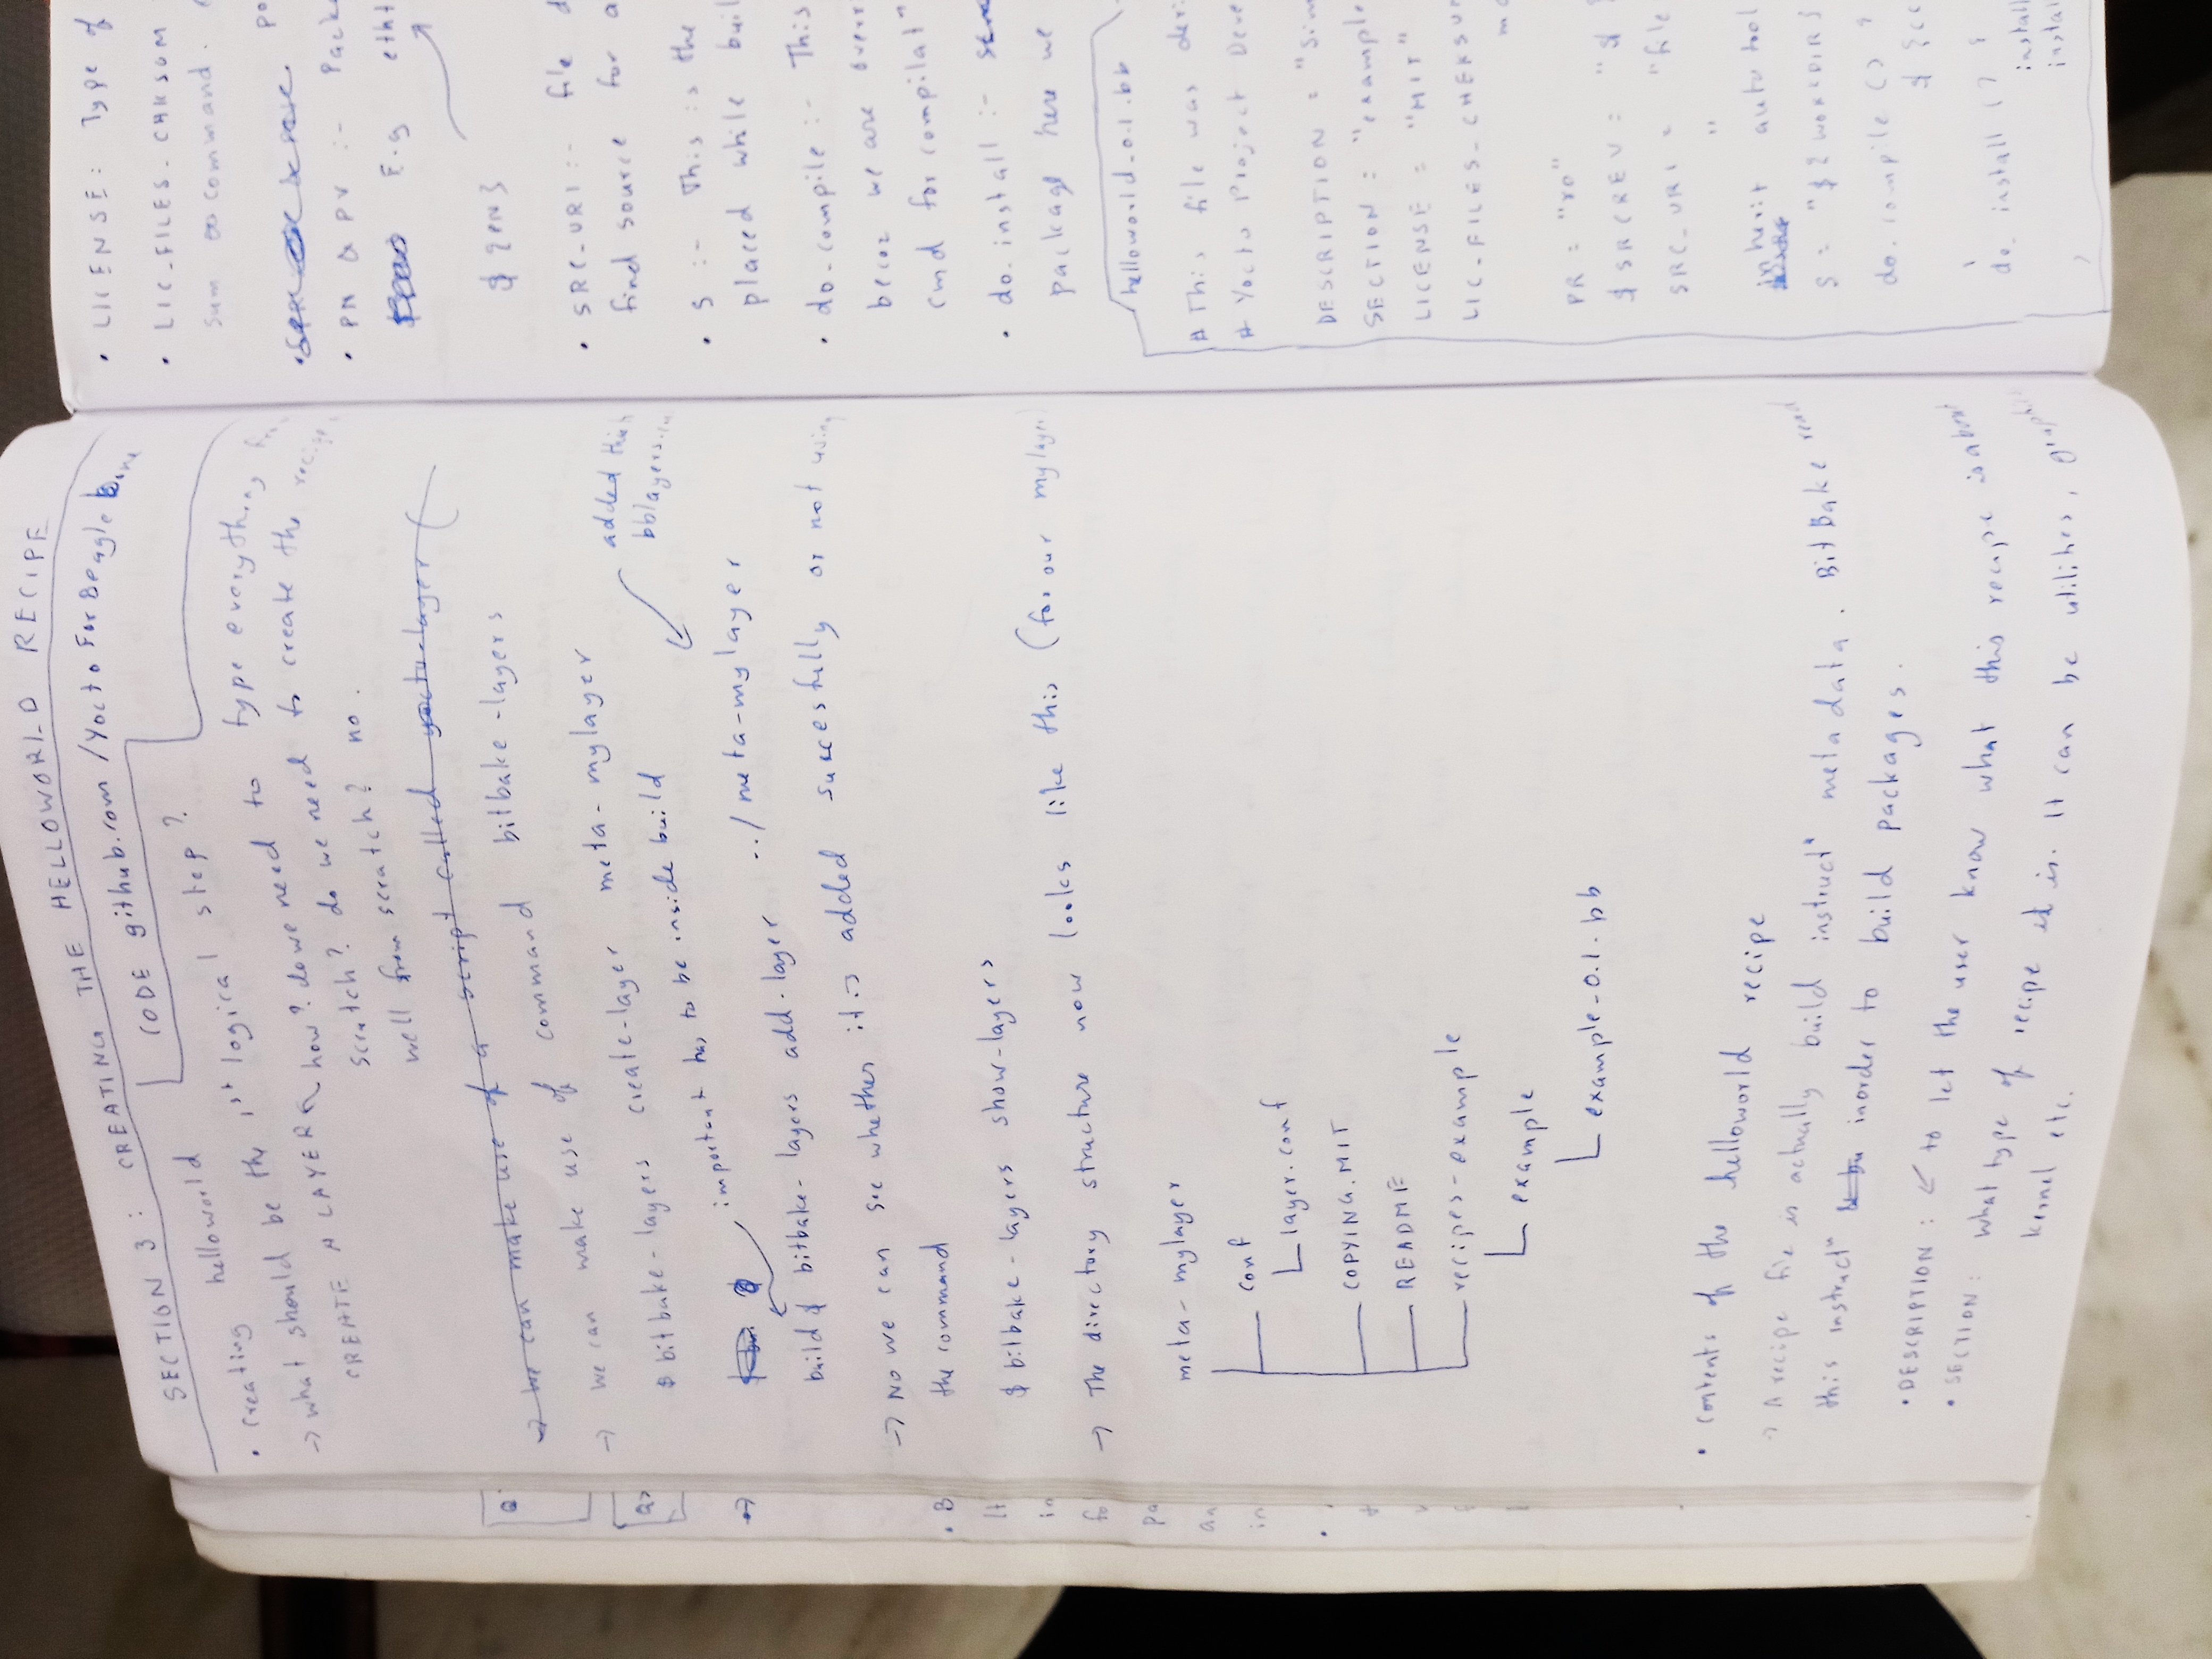 SECTION 3 : CREATING THE HELLOWORLD RECIPE
CODE github.com/YoctoForBeaglebone
• creating helloworld
what should be the 1st logical step ?
→ CREATE A LAYER how? do we need to type everything
scratch? do we need to create the
well from scratch? no.
→ we can make use of a script called yocto-layer (
→ we can make use of command bitbake-layers
$ bitbake-layers create-layer meta-mylayer
important has to be inside build
added this
bblayers.
build $ bitbake-layers add-layer ../meta-mylayer
→ NOW we can see whether it is added sucessfully or not using
the command
$ bitbake-layers show-layers
→ The directory structure now looks like this (for our mylayer)
meta-mylayer
conf
layer.conf
COPYING.MIT
README
recipes-example
example
example-0.1.bb
• contents of the helloworld recipe
→ A recipe file is actually build instructn meta data. BitBake read
this instructn inorder to build packages.
• DESCRIPTION : ← to let the user know what this recipe is about
• SECTION: what type of recipe it is. It can be utilities,
kernel etc.
• LICENSE: Type of
• LIC_FILES_CHKSUM
sum command.
• PN & PV :- Pack
E.g eth
$ {PN}
• SRC_URI:- file
find source for a
• S :- This is the
placed while buil
• do_compile :- This
becoz we are overr
cmd for compilatn
• do_install :-
package here we
helloworld-0.1.bb
# This file was deri
# Yocto Project Deve
DESCRIPTION = "Sim
SECTION = "example
LICENSE = "MIT"
LIC_FILES_CHEKSUM
PR = "r0"
$ SRCREV = "$ {
SRC_URI = "file
"
inherit autotool
S = "${WORKDIR}
do_compile () {
${CC
}
do_install () {
install
instal
}